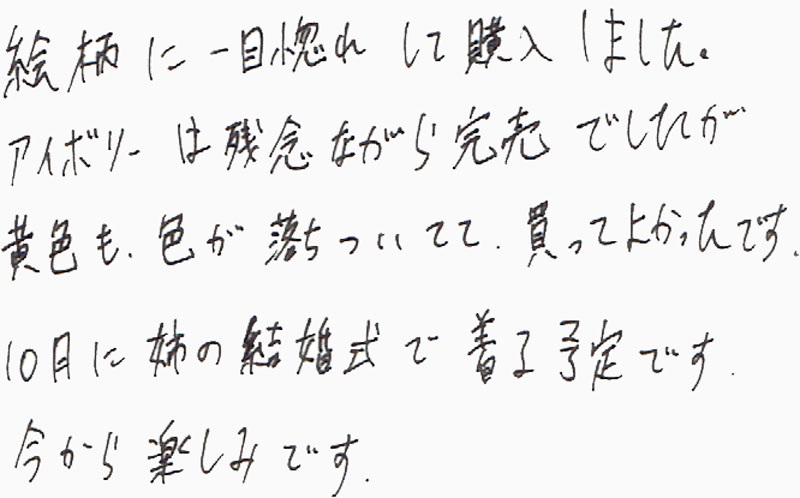 絵柄に一目惚れして購入しました。
アイボリーは残念ながら完売でしたが
黄色も、色が落ちついてて、買ってよかったです。
10月に姉の結婚式で着る予定です。
今から楽しみです。